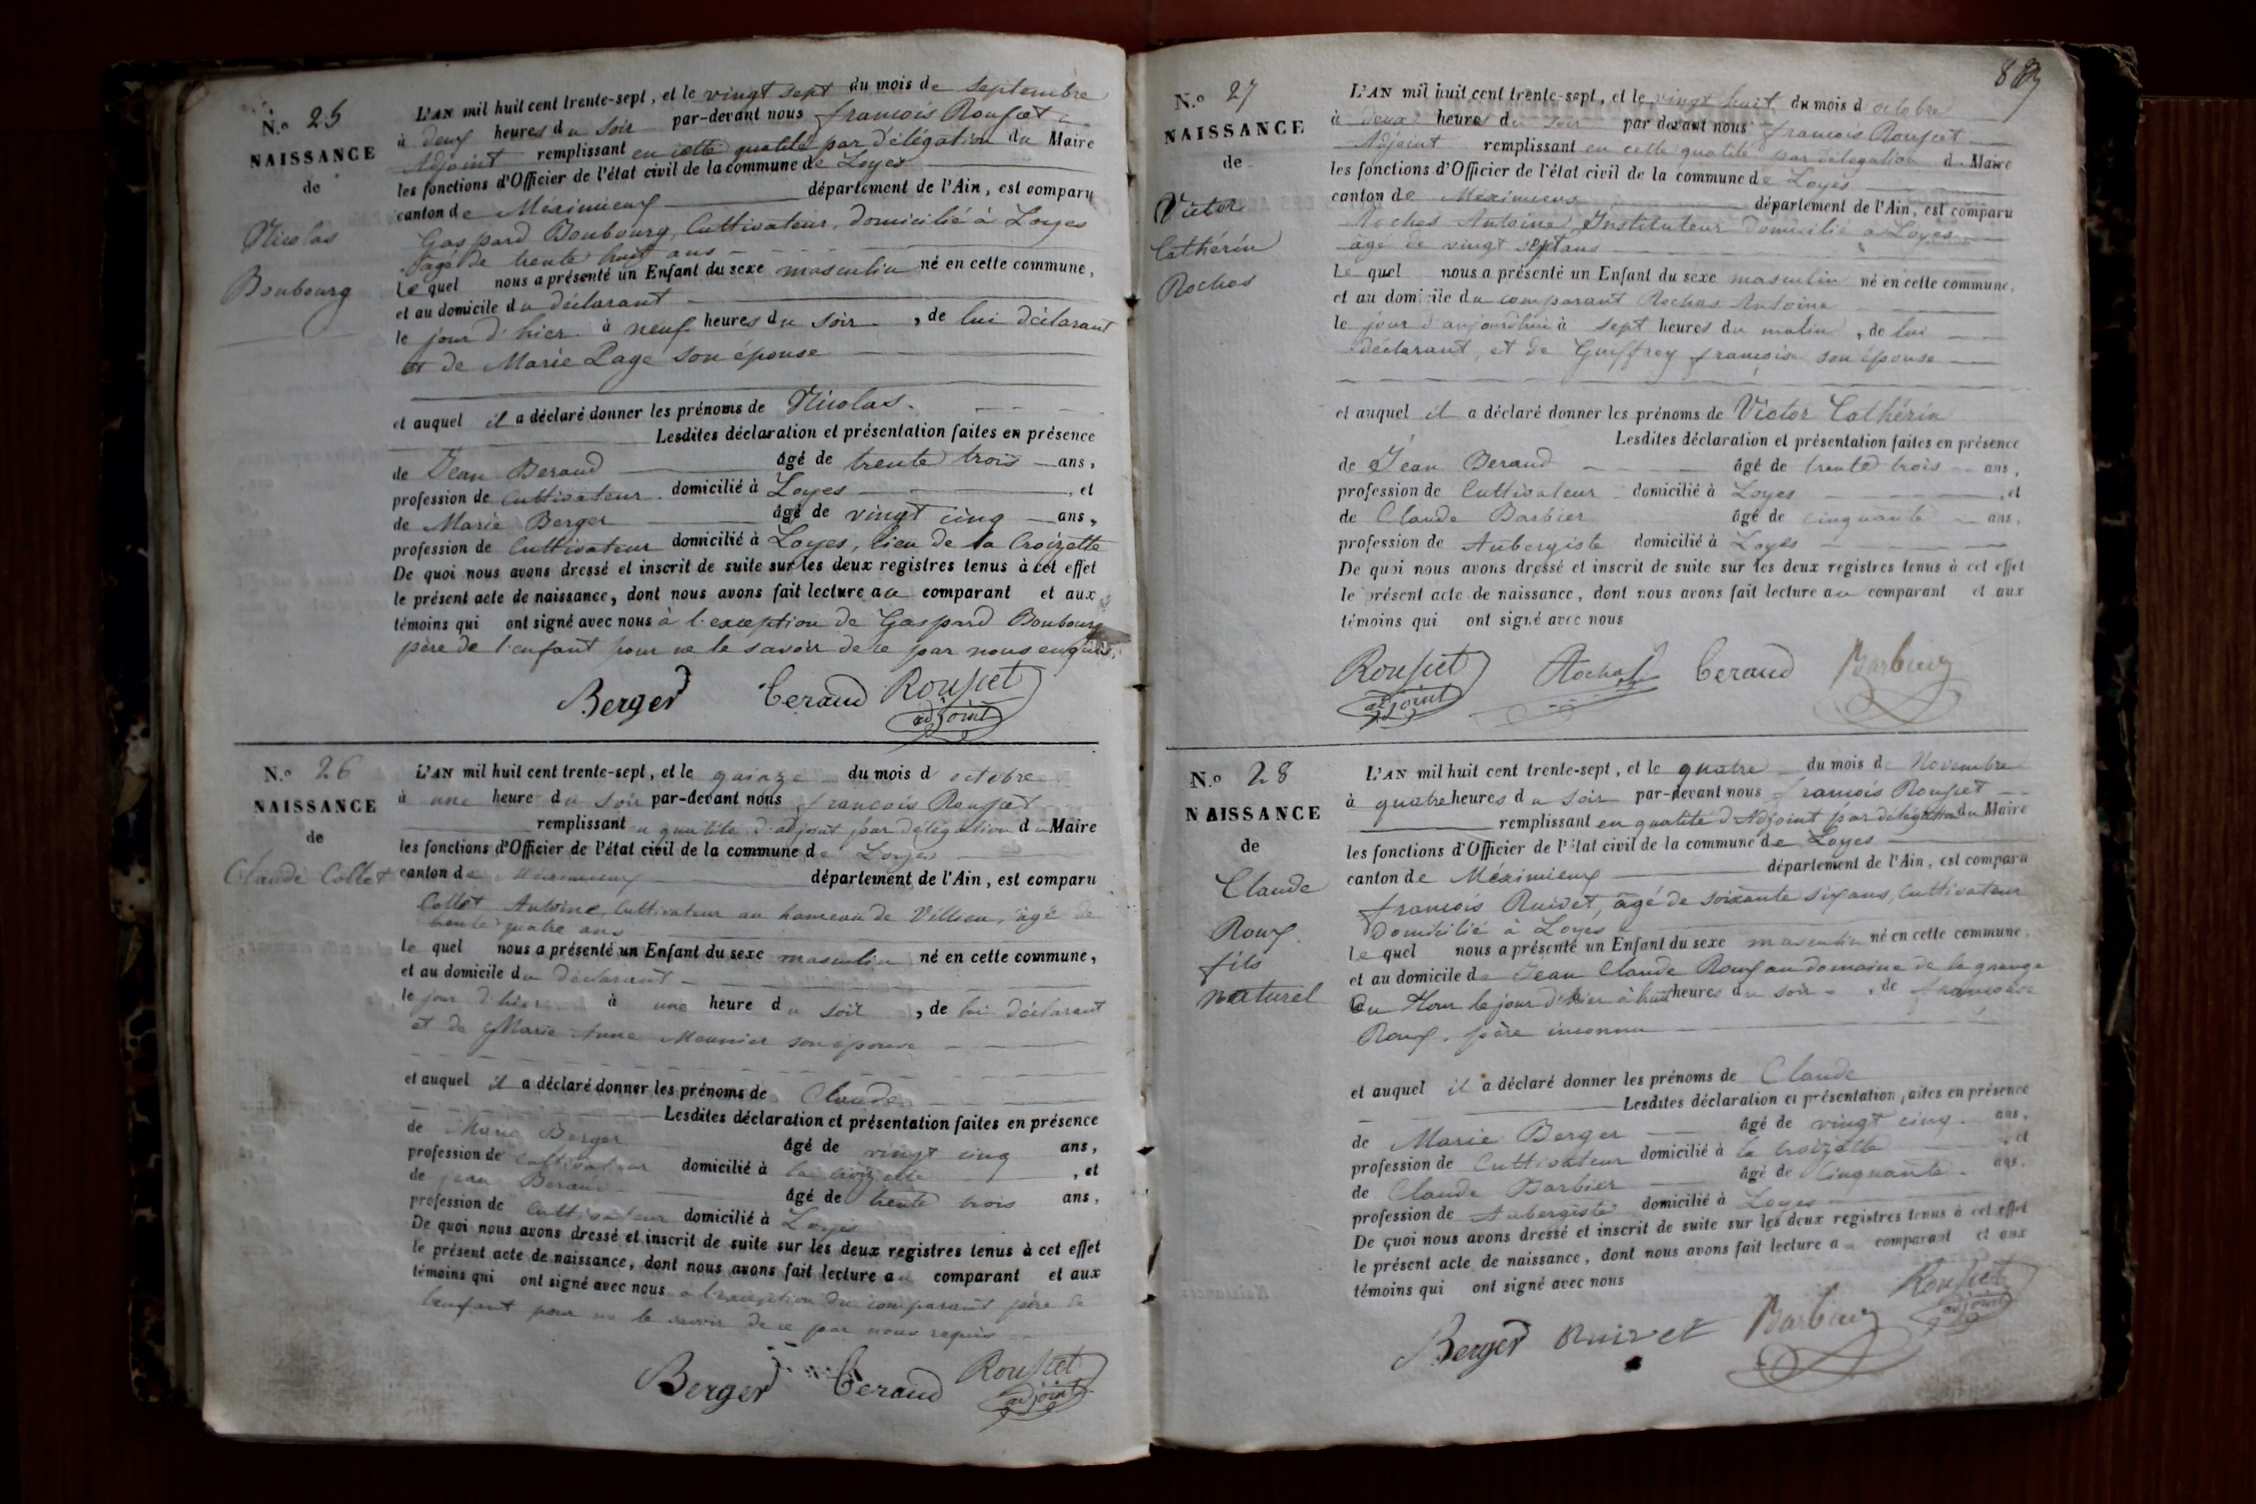 N.° 25
NAISSANCE
de
Nicolas
Boubourg
L'AN mil huit cent trente-sept, et le vingt sept du mois de septembre
à deux heures du soir par-devant nous françois Roupset
Adjoint remplissant en cette qualité par délégation du Maire
les fonctions d'Officier de l'état civil de la commune de Loyes
canton de Méximieux département de l'Ain, est comparu
Gaspard Boubourg, Cultivateur, domicilié à Loyes
âgé de trente huit ans
Le quel nous a présenté un Enfant du sexe masculin né en cette commune,
et au domicile du déclarant
le jour d'hier à neuf heures du soir, de lui déclarant
et de Marie Page son épouse
et auquel il a déclaré donner les prénoms de Nicolas.
Lesdites déclaration et présentation faites en présence
de Jean Beraud âgé de trente trois ans,
profession de Cultivateur domicilié à Loyes, et
de Marie Berger âgé de vingt cinq ans,
profession de Cultivateur domicilié à Loyes, lieu de la Croizette
De quoi nous avons dressé et inscrit de suite sur les deux registres tenus à cet effet
le présent acte de naissance, dont nous avons fait lecture au comparant et aux
témoins qui ont signé avec nous à l'exception de Gaspard Boubourg
père de l'enfant pour ne le savoir de ce par nous enquis.
Berger Beraud Roupset
adjoint
N.° 26
NAISSANCE
de
Claude Collet
L'AN mil huit cent trente-sept, et le quinze du mois d octobre
à une heure du soir par-devant nous françois Roupset
remplissant en qualité d'adjoint par délégation du Maire
les fonctions d'Officier de l'état civil de la commune de Loyes
canton de Méximieux département de l'Ain, est comparu
Collet Antoine, Cultivateur au hameau de Villieu, âgé de
trente quatre ans
le quel nous a présenté un Enfant du sexe masculin né en cette commune,
et au domicile du déclarant
le jour d'hier à une heure du soir, de lui déclarant
et de Marie Anne Meunier son épouse
et auquel il a déclaré donner les prénoms de Claude
Lesdites déclaration et présentation faites en présence
de Marie Berger âgé de vingt cinq ans,
profession de Cultivateur domicilié à la croizette, et
de jean Beraud âgé de trente trois ans,
profession de Cultivateur domicilié à Loyes
De quoi nous avons dressé et inscrit de suite sur les deux registres tenus à cet effet
le présent acte de naissance, dont nous avons fait lecture au comparant et aux
témoins qui ont signé avec nous à l'exception du comparant père de
l'enfant pour ne le savoir de ce par nous requis
Berger Beraud Roupset
adjoint
889
N.° 27
NAISSANCE
de
Victor
Cathérin
Rochas
L'AN mil huit cent trente-sept, et le vingt huit du mois d octobre
à deux heures du soir par devant nous françois Roupset
Adjoint remplissant en cette qualité par délégation d. Maire
les fonctions d'Officier de l'état civil de la commune de Loyes
canton de Méximieux département de l'Ain, est comparu
Rochas Antoine, Instituteur domicilié à Loyes
âgé de vingt sept ans
Le quel nous a présenté un Enfant du sexe masculin né en cette commune,
et au domicile du comparant Rochas Antoine
le jour d'aujourdhui à sept heures du matin, de lui
déclarant, et de Guiffrey françoise son épouse
et auquel il a déclaré donner les prénoms de Victor Cathérin
Lesdites déclaration et présentation faites en présence
de Jean Beraud âgé de trente trois ans,
profession de Cultivateur domicilié à Loyes, et
de Claude Barbier âgé de cinquante ans,
profession de Aubergiste domicilié à Loyes
De quoi nous avons dressé et inscrit de suite sur les deux registres tenus à cet effet
le présent acte de naissance, dont nous avons fait lecture au comparant et aux
témoins qui ont signé avec nous
Roupset Rochas Beraud Barbier
adjoint
N.° 28
NAISSANCE
de
Claude
Roux
fils
naturel
L'AN mil huit cent trente-sept, et le quatre du mois de Novembre
à quatre heures du soir par-devant nous françois Roupset
remplissant en qualité d'Adjoint par délégation du Maire
les fonctions d'Officier de l'état civil de la commune de Loyes
canton de Méximieux département de l'Ain, est comparu
françois Ruivet, âgé de soixante six ans, Cultivateur
Domicilié à Loyes
Le quel nous a présenté un Enfant du sexe masculin né en cette commune,
et au domicile de Jean Claude Roux au domaine de la grange
du Mour le jour d'hier à huit heures du soir, de françoise
Roux, père inconnu
et auquel il a déclaré donner les prénoms de Claude
Lesdites déclaration et présentation faites en présence
de Marie Berger âgé de vingt cinq ans,
profession de Cultivateur domicilié à la Croizette, et
de Claude Barbier âgé de Cinquante ans.
profession de Aubergiste domicilié à Loyes
De quoi nous avons dressé et inscrit de suite sur les deux registres tenus à cet effet
le présent acte de naissance, dont nous avons fait lecture au comparant et aux
témoins qui ont signé avec nous
Berger Ruivet Barbier Roupset
adjoint